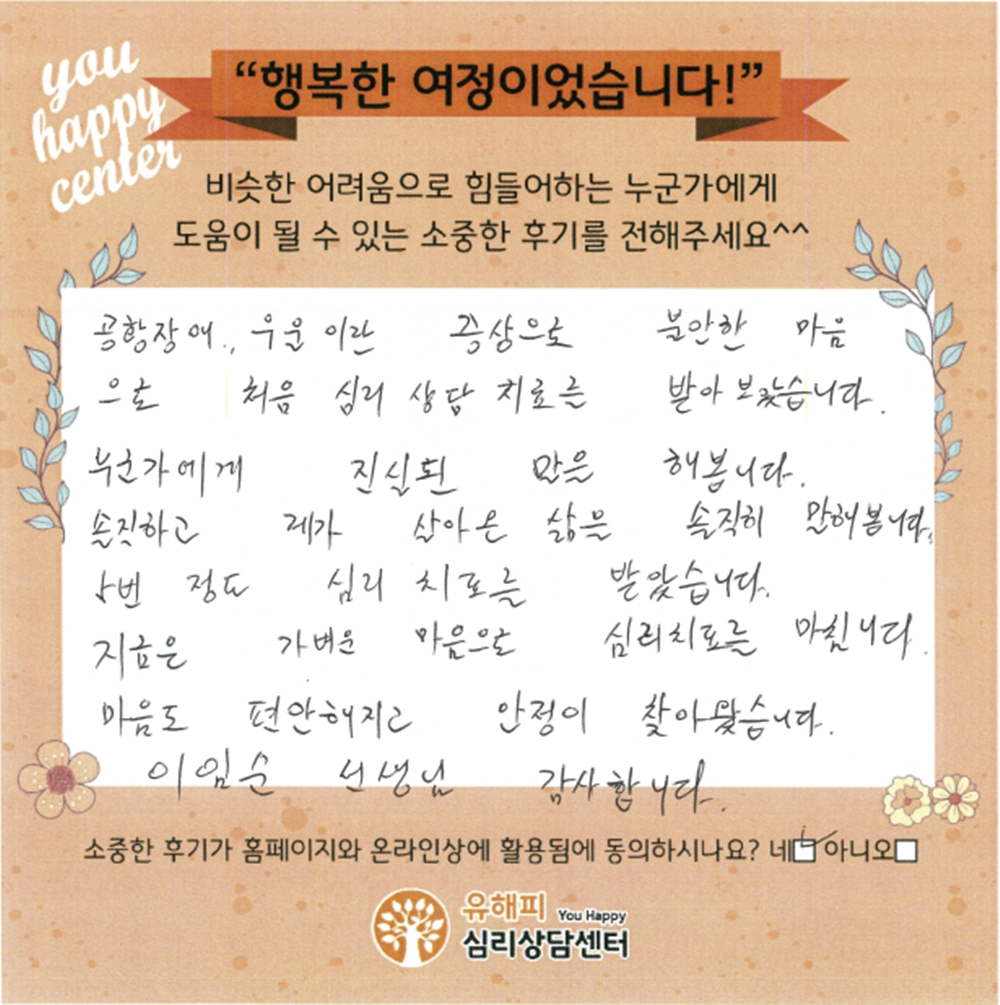 you
happy
center
“행복한 여정이었습니다!”
비슷한 어려움으로 힘들어하는 누군가에게
도움이 될 수 있는 소중한 후기를 전해주세요^^
공항장애., 우울이란 증상으로 불안한 마음
으로 처음 심리 상담 치료를 받아 보았습니다.
누군가에게 진실된 말을 해봅니다.
솔직하고 제가 살아온 삶을 솔직히 말해봅니다.
번 정도 심리 치료를 받았습니다.
지금은 가벼운 마음으로 심리치료를 마칩니다.
마음도 편안해지고 안정이 찾아왔습니다.
이임순 선생님 감사합니다.
소중한 후기가 홈페이지와 온라인상에 활용됨에 동의하시나요? 네☑ 아니오□
유해피 You Happy
심리상담센터